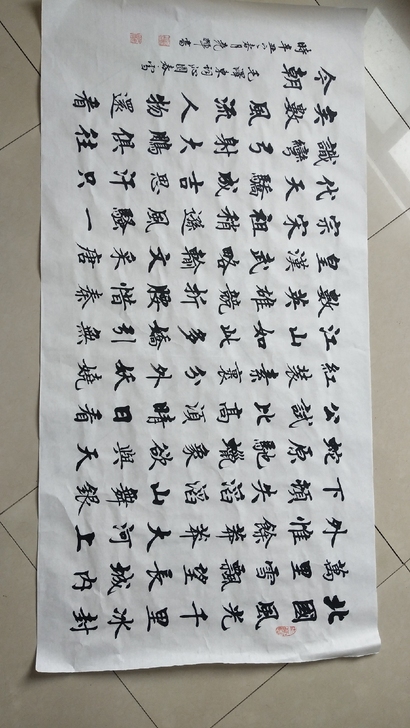 北國風光千里冰封
萬里雪飄望長城內
外惟餘莽莽大河上
下頓失滔滔山舞銀
蛇原馳蠟象欲與天
公試比高須晴日看
紅裝素裹分外妖嬈
江山如此多嬌引無
數英雄競折腰惜秦
皇漢武略輸文采唐
宗宋祖稍遜風騷一
代天驕成吉思汗只
識彎弓射大鵬俱往
矣數風流人物還看
今朝
毛澤東詞沁園春雪
時年